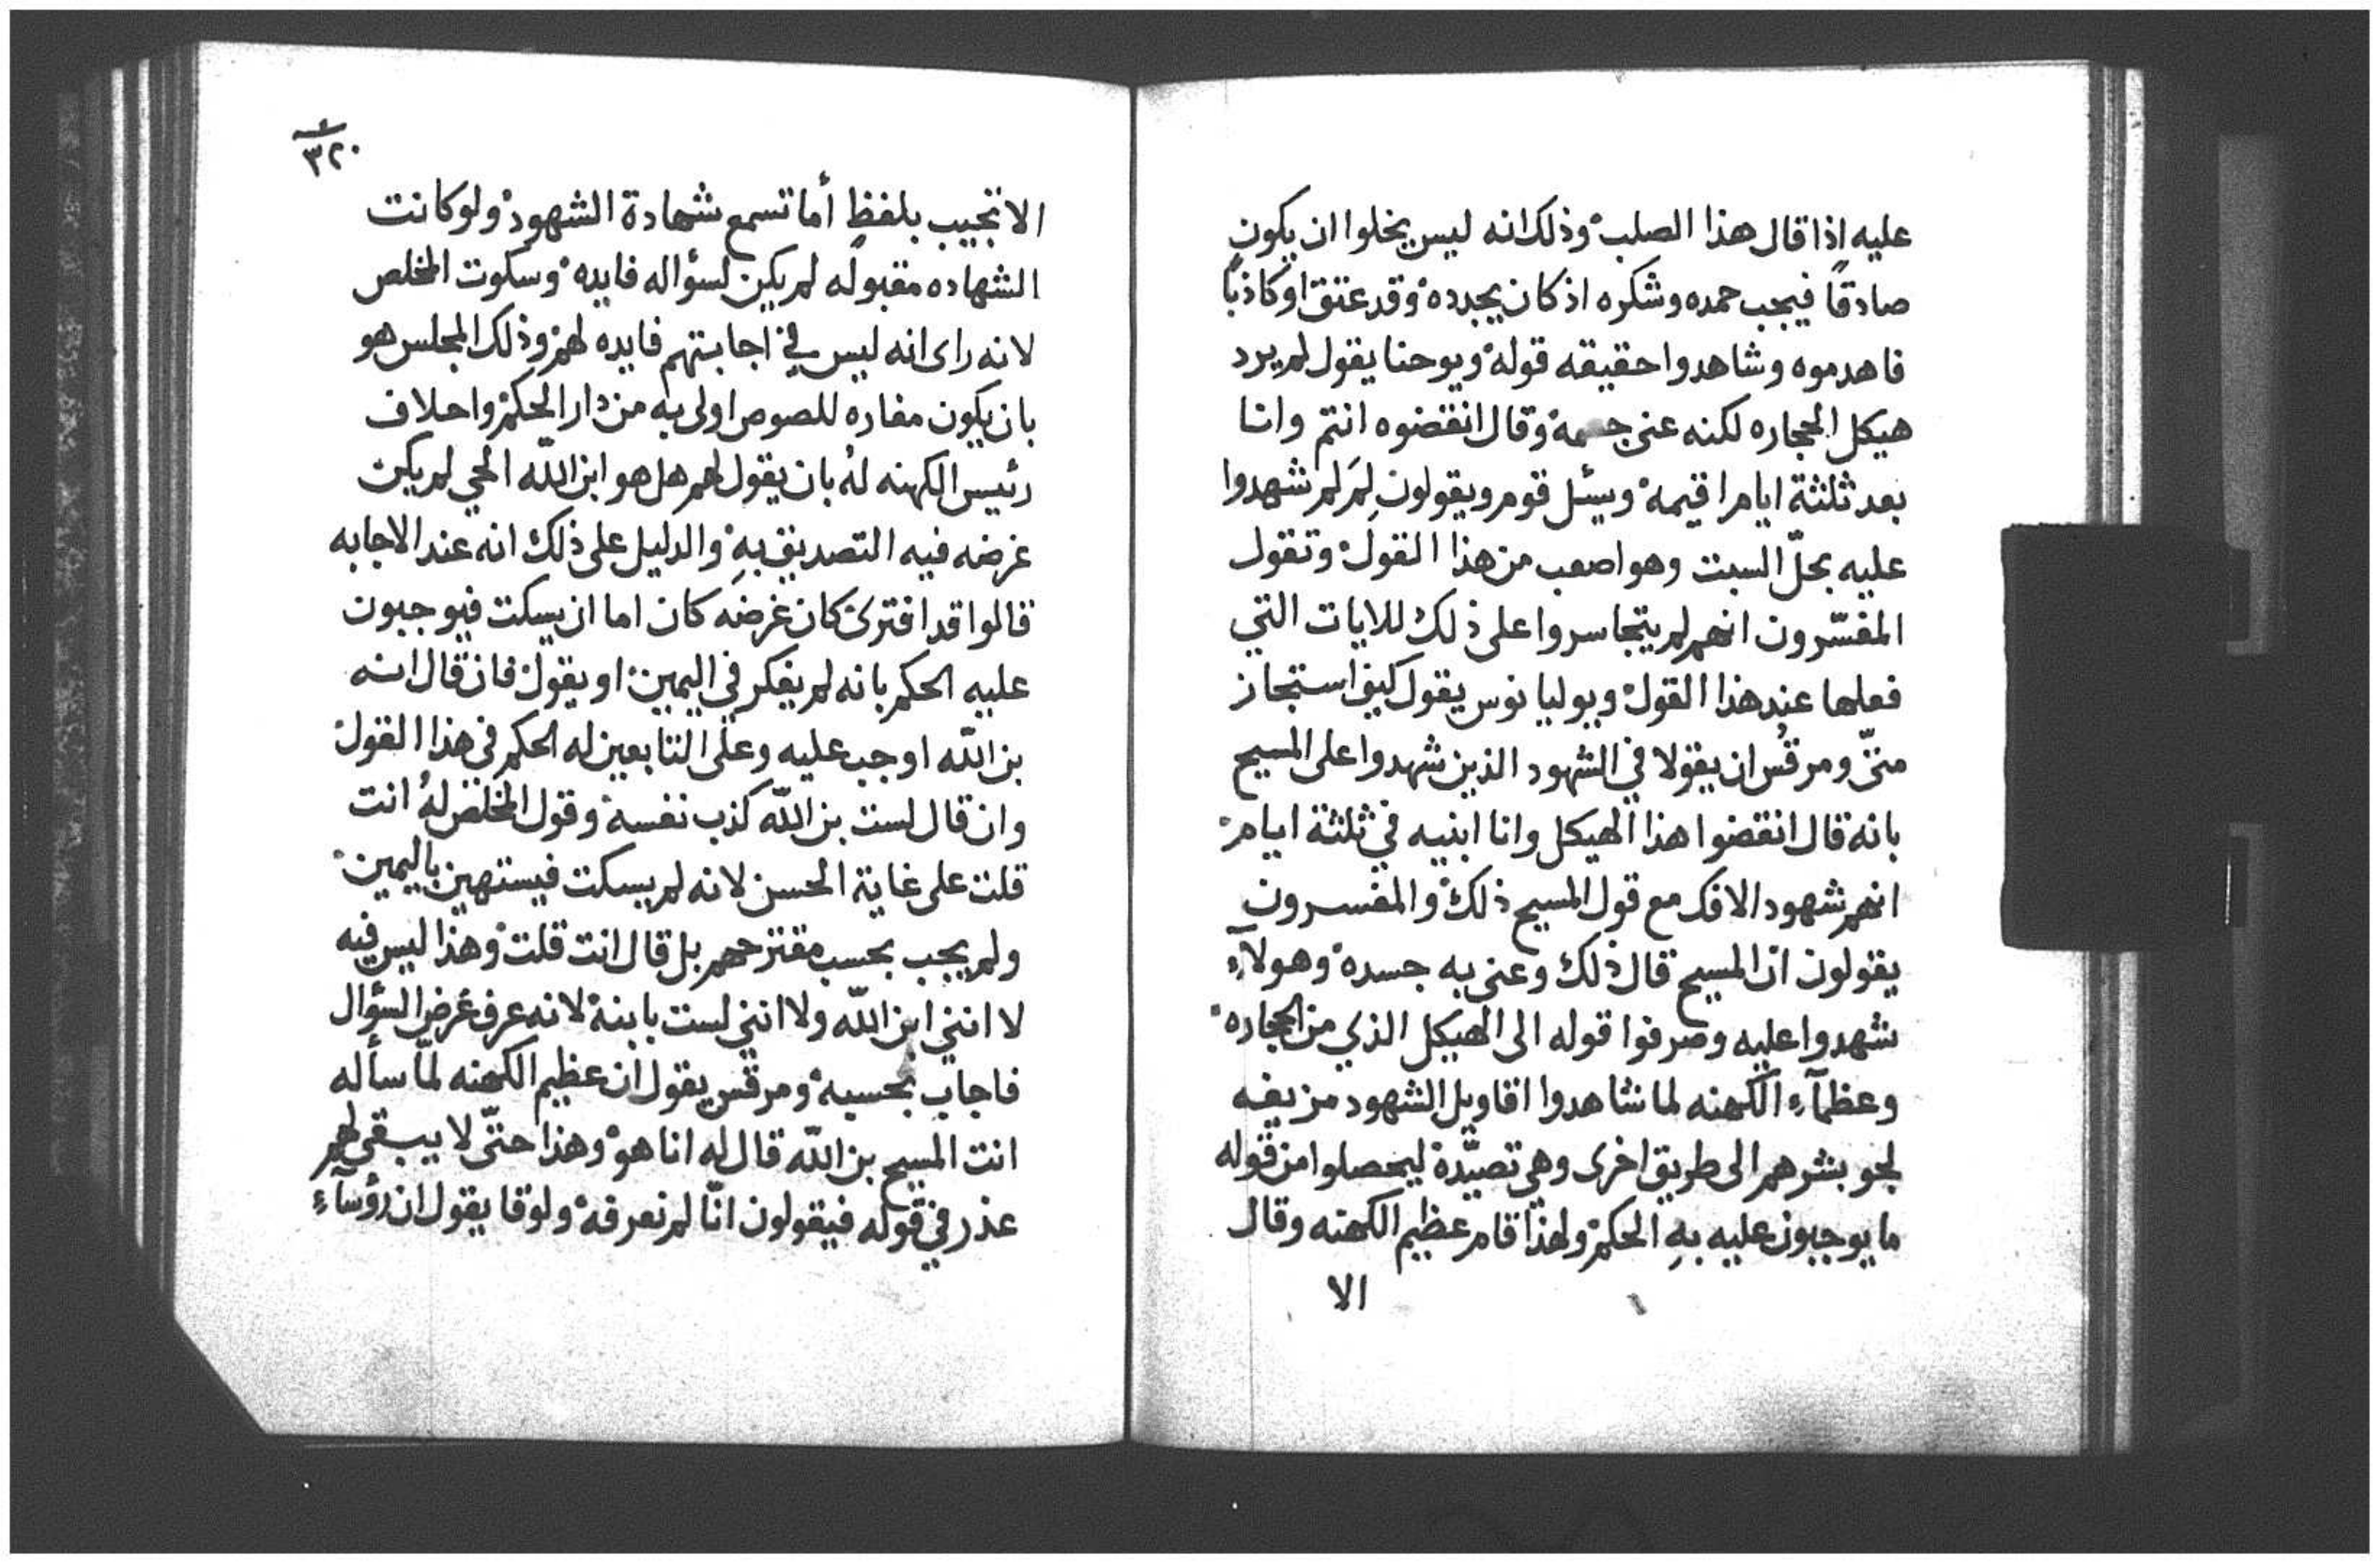 عليه اذا قال هذا الصلب وذلك انه ليس يخلوا ان يكون
صادقًا فيجب حمده وشكره اذ كان يجدده وقد عتق او كاذبًا
فاهدموه وشاهدوا حقيقه قوله ويوحنا يقول لم يرد
هيكل الحجاره لكنه عنى جسمه وقال انقضوه انتم وانا
بعد ثلثة ايام اقيمه ويسئل قوم ويقولون لِمَ لم شهدوا
عليه بحلّ السبت وهو اصعب من هذا القول وتقول
المفسّرون انهم لم يتجاسروا على ذلك للايات التي
فعلها عند هذا القول ويوليانوس يقول كيف استجاز
متىّ ومرقُس ان يقولا في الشهود الذين شهدوا على المسيح
بانه قال انقضوا هذا الهيكل وانا ابنيه في ثلثة ايام
انهم شهود الافك مع قول المسيح ذلك والمفسرون
يقولون ان المسيح قال ذلك وعنى به جسده وهولآءِ
شهدوا عليه وصرفوا قوله الى الهيكل الذي من الحجاره
وعظمآءِ الكهنه لما شاهدوا اقاويل الشهود مزيفه
لجو بشرهم الى طريق اخرى وهي تصيّدة ليحصلوا من قوله
ما يوجبون عليه بهِ الحكم ولهذا قام عظيم الكهنه وقال
الا
٣٢٠
الا تجيب بلفظٍ أما تسمع شهادة الشهود ولو كانت
الشهاده مقبوله لم يكن لسؤاله فايده وسكوت المخلص
لانه راى انه ليس في اجابتهم فايده لهم وذلك المجلس هو
بان يكون مغاره للصوص اولى به من دار الحكم واحلاف
رئيس الكهنه لهُ بان يقول لهم هل هو ابن اللّه الحي لم يكن
غرضه فيه التصديق بهِ والدليل على ذلك انه عند الاجابه
قالوا قد افترى كان غرضه كان اما ان يسكت فيوجبون
عليه الحكم بانه لم يفكر في اليمين او يقول فان قال انه
بن اللّه اوجب عليه وعلى التابعين له الحكم في هذا القول
وان قال لست بن اللّه كذب نفسه وقول المخلص لهُ انت
قلت على غاية الحسن لانه لم يسكت فيستهين باليمين
ولم يجب بحسب مقترحهم بل قال انت قلت وهذا ليس فيه
لا انني ابن اللّه ولا انني لست بابنه لانه عرف غرض السؤال
فاجاب بحسبه ومرقس يقول ان عظيم الكهنه لمّا سأله
انت المسيح بن اللّه قال له انا هو وهذا حتّى لا يبقى لهم
عذر في قوله فيقولون انّا لم نعرفه ولوقا يقول ان رؤسآءِ